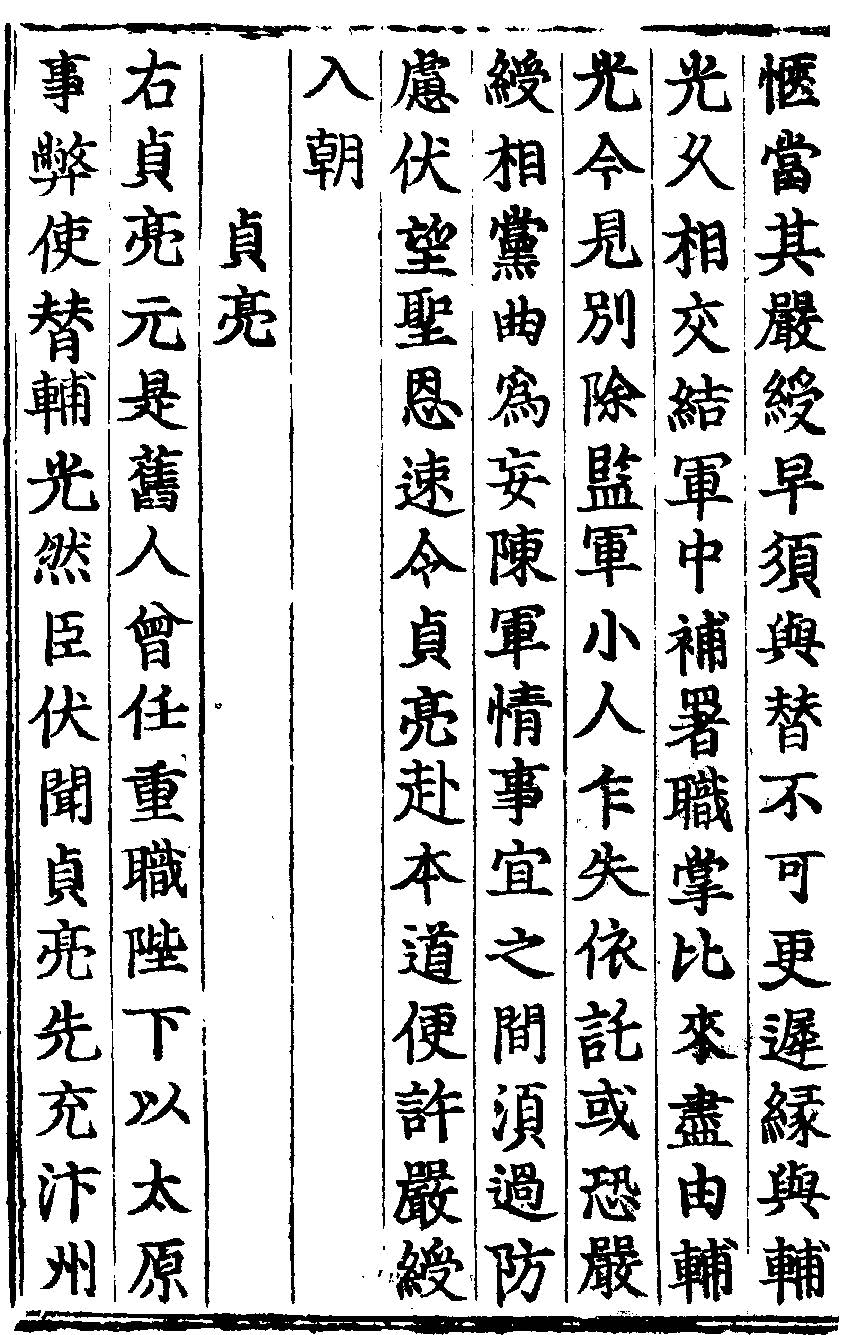 愜當其嚴綬早須與替不可更遲緣與輔
光久相交結軍中補署職掌比來盡由輔
光今見別除監軍小人乍失依託或恐嚴
綬相黨曲爲妄陳軍情事宜之間須過防
慮伏望聖恩速令貞亮赴本道便許嚴綬
入朝
貞亮
右貞亮元是舊人曾任重職陛下以太原
事弊使替輔光然臣伏聞貞亮先充汴州